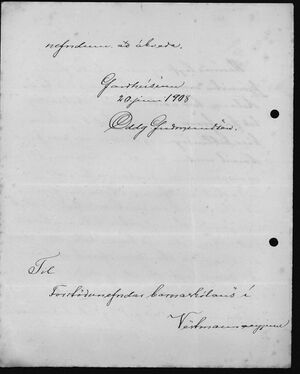 nefndum að ákveða.
20 júni 1908
Oddg Guðmundsson.
Til
Forstöðunefndar barnaskólans í
Vestmannaeyjum